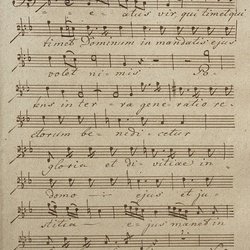 e - atus vir qui timet qui
timet Dominum in mandatis ejus
volet nimis. Po-
ens in terra gene ratio re-
ctorum be - nedi - cetur
gloria et di - vitiae in
domo - ejus et ju-
stitia - e - jus manet in